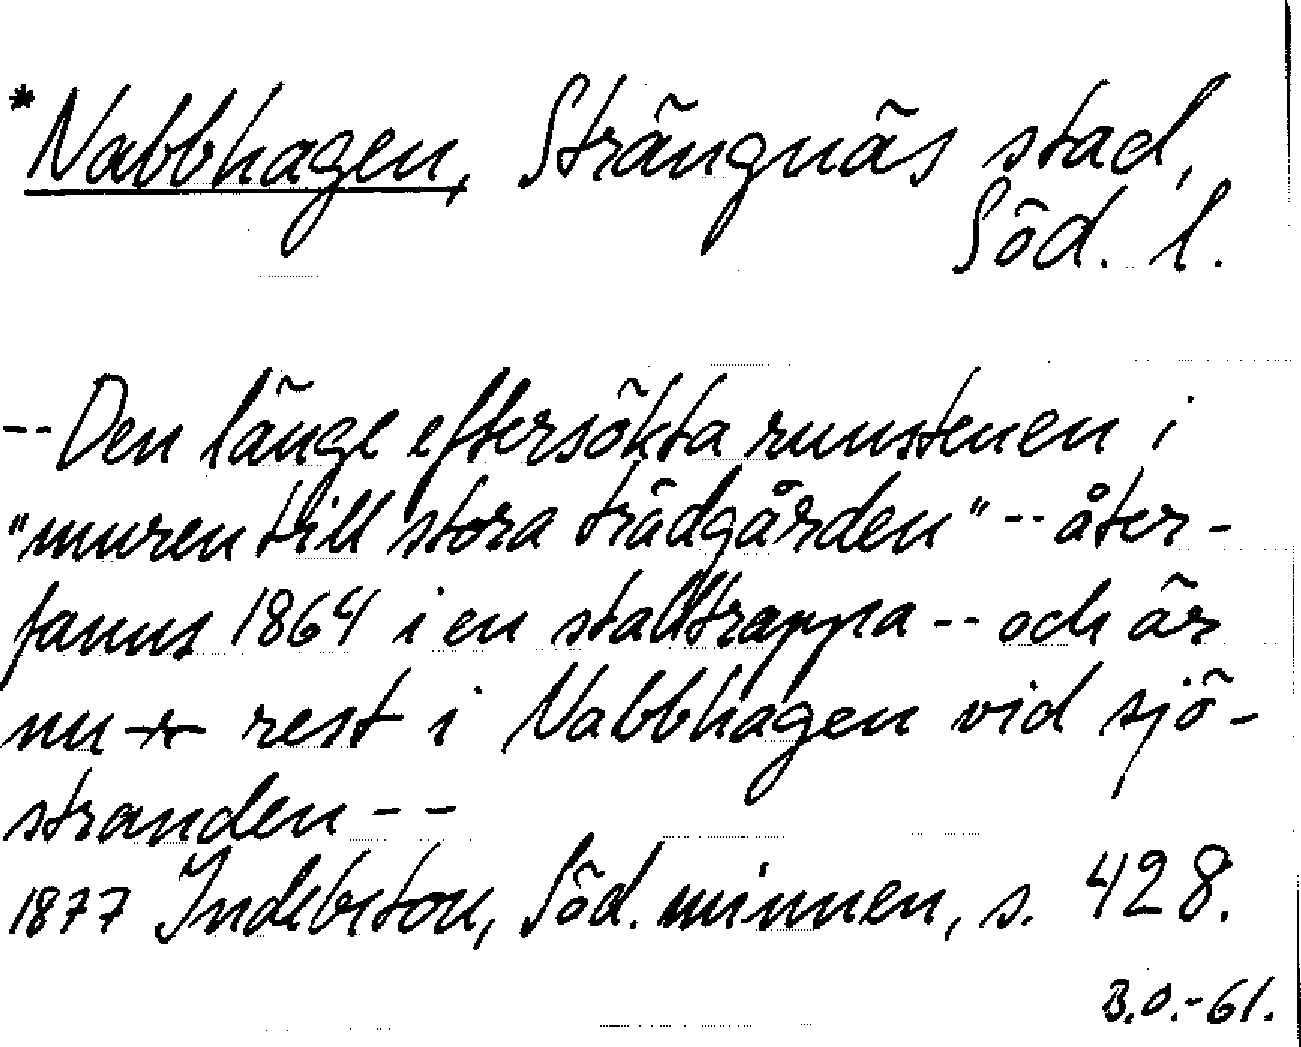 *Nabbhagen, Strängnäs stad,
Söd. l.
--Den länge eftersökta runstenen i
"muren till stora trädgården" -- åter-
fanns 1864 i en stalltrappa -- och är
nu rest i Nabbhagen vid sjö-
stranden --
1877 Indebetou, Söd. minnen, s. 428.
B.O.-61.